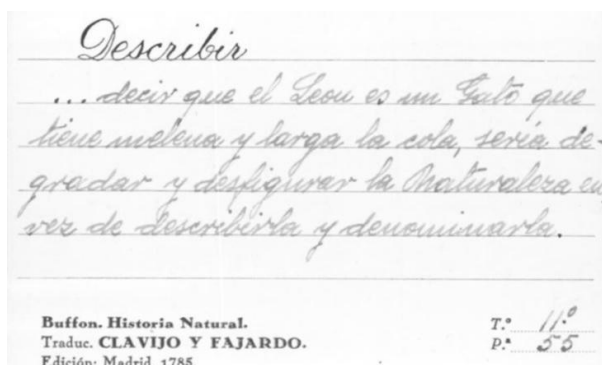 Describir
... decir que el Leon es un Gato que
tiene melena y larga la cola, sería de-
gradar y desfigurar la Naturaleza en
vez de describirla y denominarla.
Buffon. Historia Natural.
Traduc. CLAVIJO Y FAJARDO.
Edición: Madrid, 1785
T.º 11º
P.ª 55